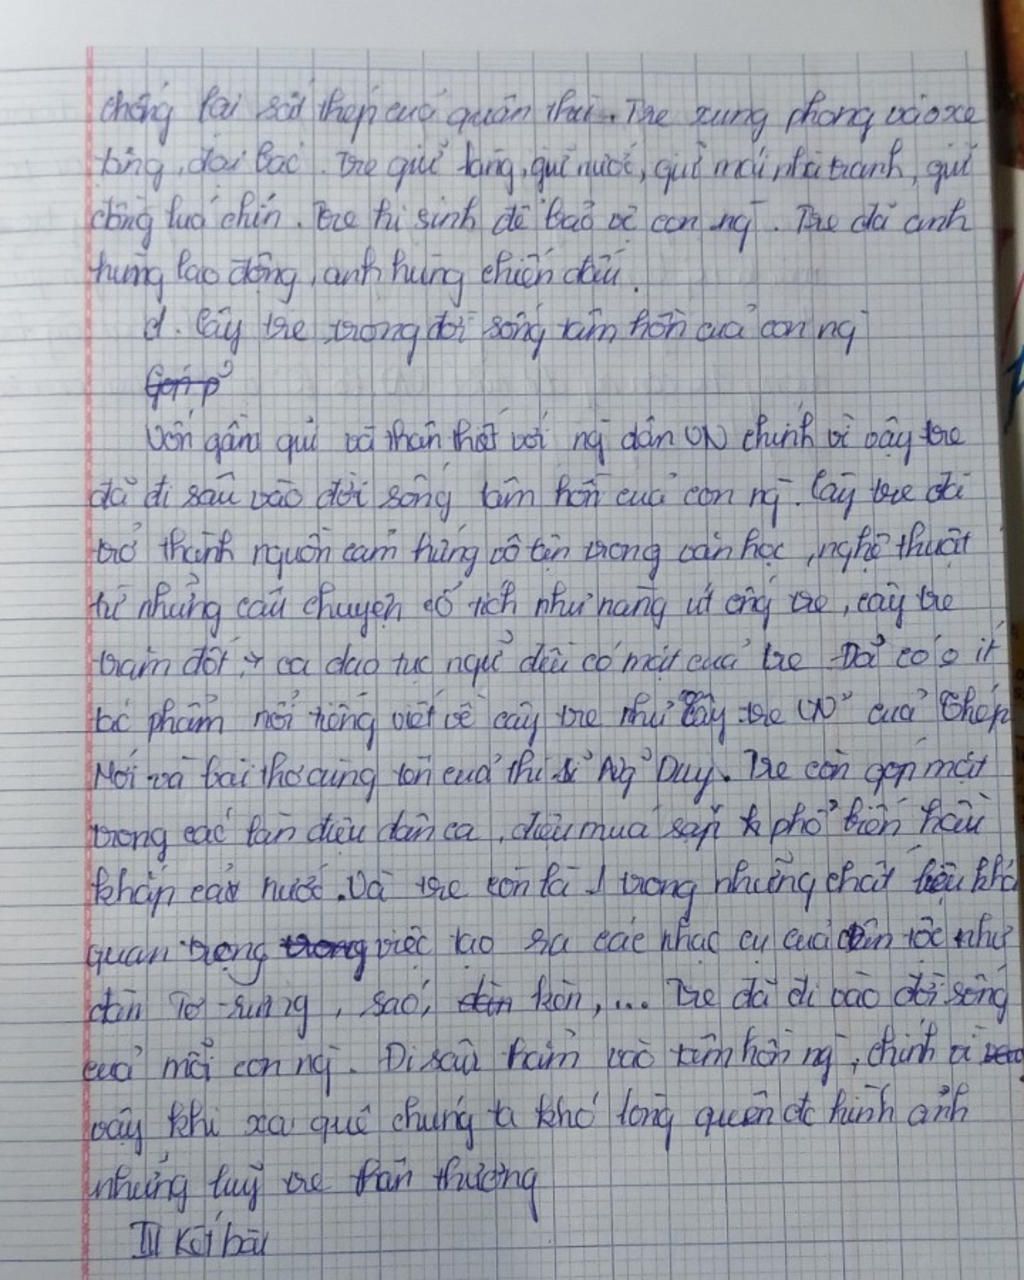 chống lại sắt thép của quân thù. Tre xung phong vào xe
tăng, đại bác. Tre giữ làng, giữ nước, giữ mái nhà tranh, giữ
đồng lúa chín. Tre hi sinh để bảo vệ con ng. Tre đã anh
hùng lao động, anh hùng chiến đấu.
d. Cây tre trong đời sống tâm hồn của con ng
Vốn gần gũi và thân thiết với ng dân VN chính vì vậy tre
đã đi sâu vào đời sống tâm hồn của con ng. Cây tre đã
trở thành nguồn cảm hứng vô tận trong văn học, nghệ thuật
từ những câu chuyện cổ tích như nàng út ống tre, cây tre
trăm đốt, → ca dao tục ngữ đều có mặt của tre. Đã có o ít
tác phẩm nổi tiếng viết về cây tre như "Cây tre VN" của Thép
Mới và bài thơ cùng tên của thi sĩ Ng Duy. Tre còn góp mặt
trong các làn điệu dân ca, điệu múa sạp phổ biến hầu
khắp cả nước. Và tre còn là 1 trong những chất liệu khá
quan trọng trong việc tạo ra các nhạc cụ của dân tộc như
đàn Tơ-rưng, sáo, kèn,... Tre đã đi vào đời sống
của mỗi con ng. Đi sâu thẳm vào tâm hồn ng, chính vì
vậy khi xa quê chúng ta khó lòng quên đc hình ảnh
những luỹ tre thân thương
III Kết bài